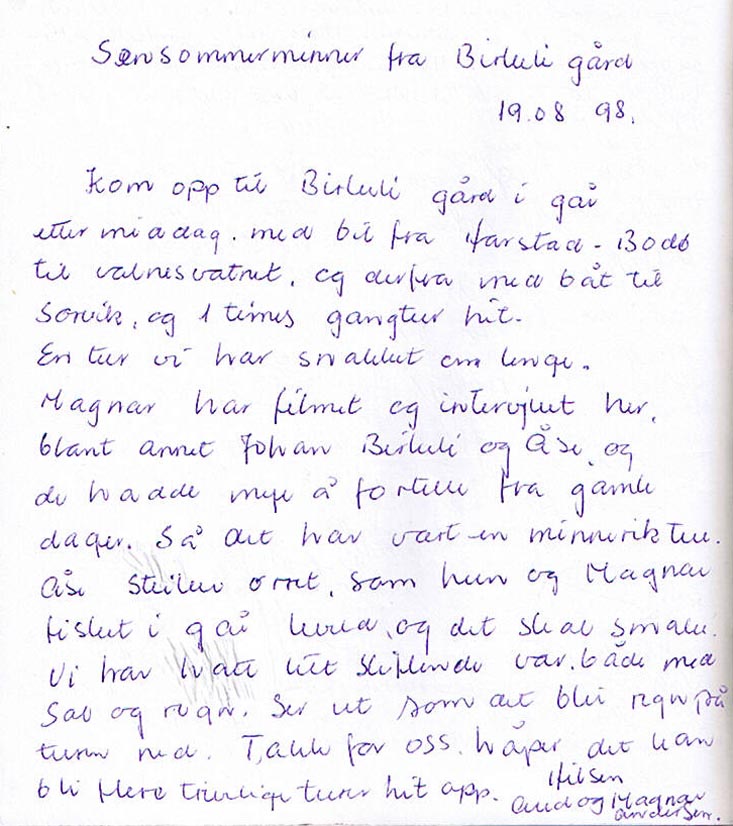 Sensommerminner fra Birkeli gård
19.08 98.
Kom opp til Birkeli gård i går
etter middag. med bil fra Harstad - Bodø
til valnesvatnet, og derfra med båt til
Sørvik, og 1 times gangtur hit.
En tur vi har snakket om lenge.
Magnar har filmet og intervjuet her,
blant annet Johan Birkeli og Åse, og
de hadde mye å fortelle fra gamle
dager. Så det har vært en minnerik tur.
Åse steiker ørret, som hun og Magnar
fisket i går kveld, og det skal smake.
Vi har hatt litt skiftende vær. både med
Sol og regn. Ser ut som det blir regn på
turen ned. Takk for oss. håper det kan
bli flere trivelige turer hit opp.
Hilsen
Aud og Magnar
Andersen.